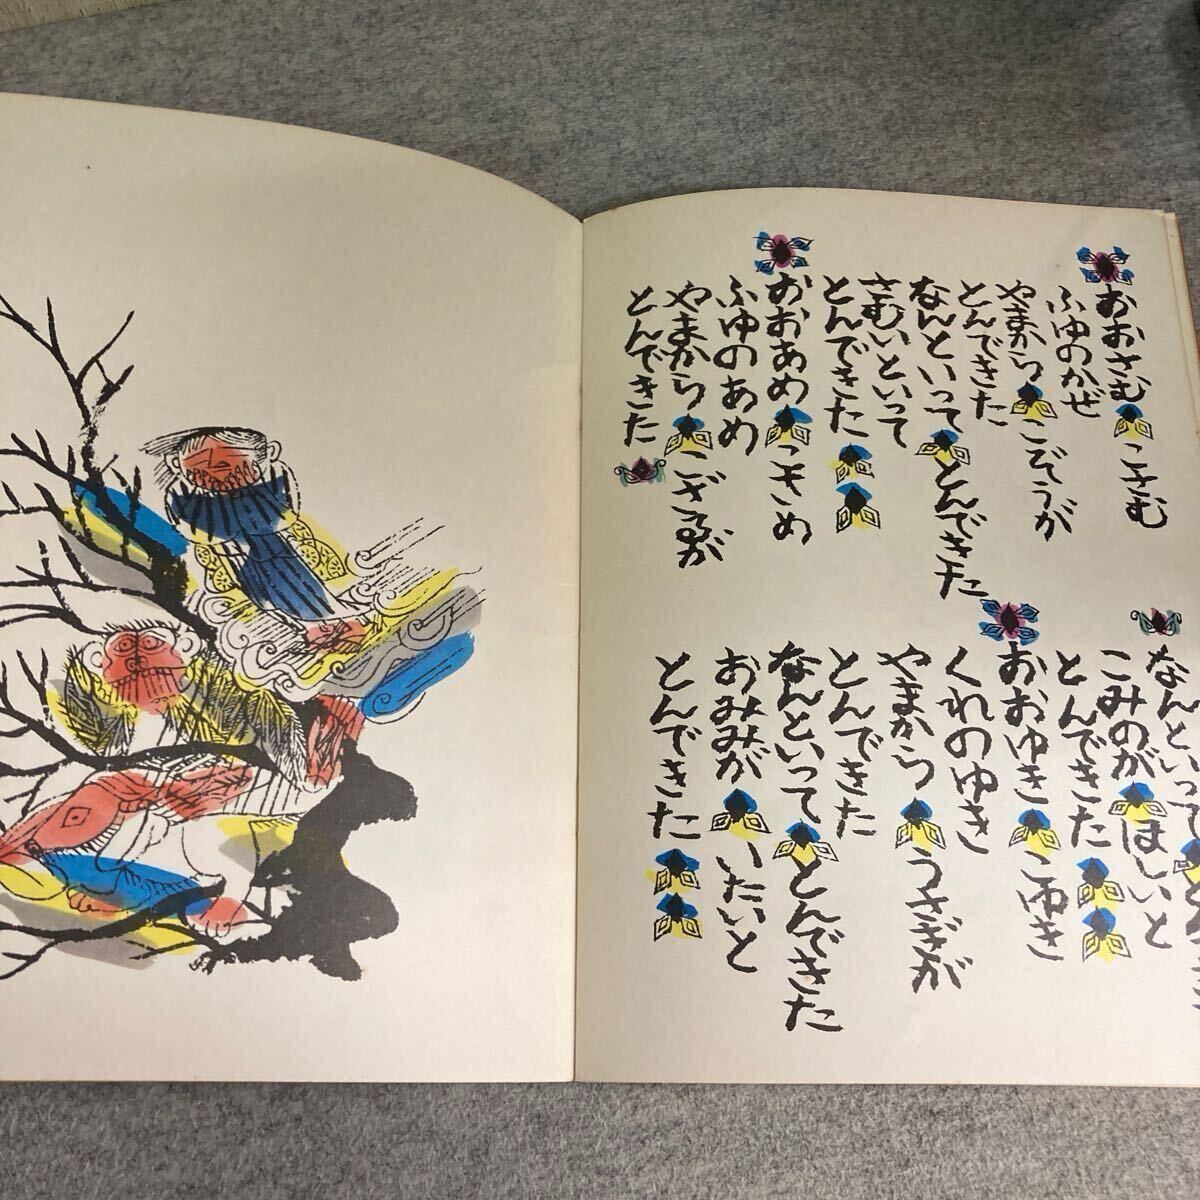 おおさむ こさむ
ふゆのかぜ
やまから こぞうが
とんできた
なんといって とんできた
さむいといって
とんできた
おおあめ こさめ
ふゆのあめ
やまから こざるが
とんできた
なんといって と
こみのが ほしいと
とんできた
おおゆき こゆき
くれのゆき
やまから うさぎが
とんできた
なんといって とんできた
おみみが いたいと
とんできた